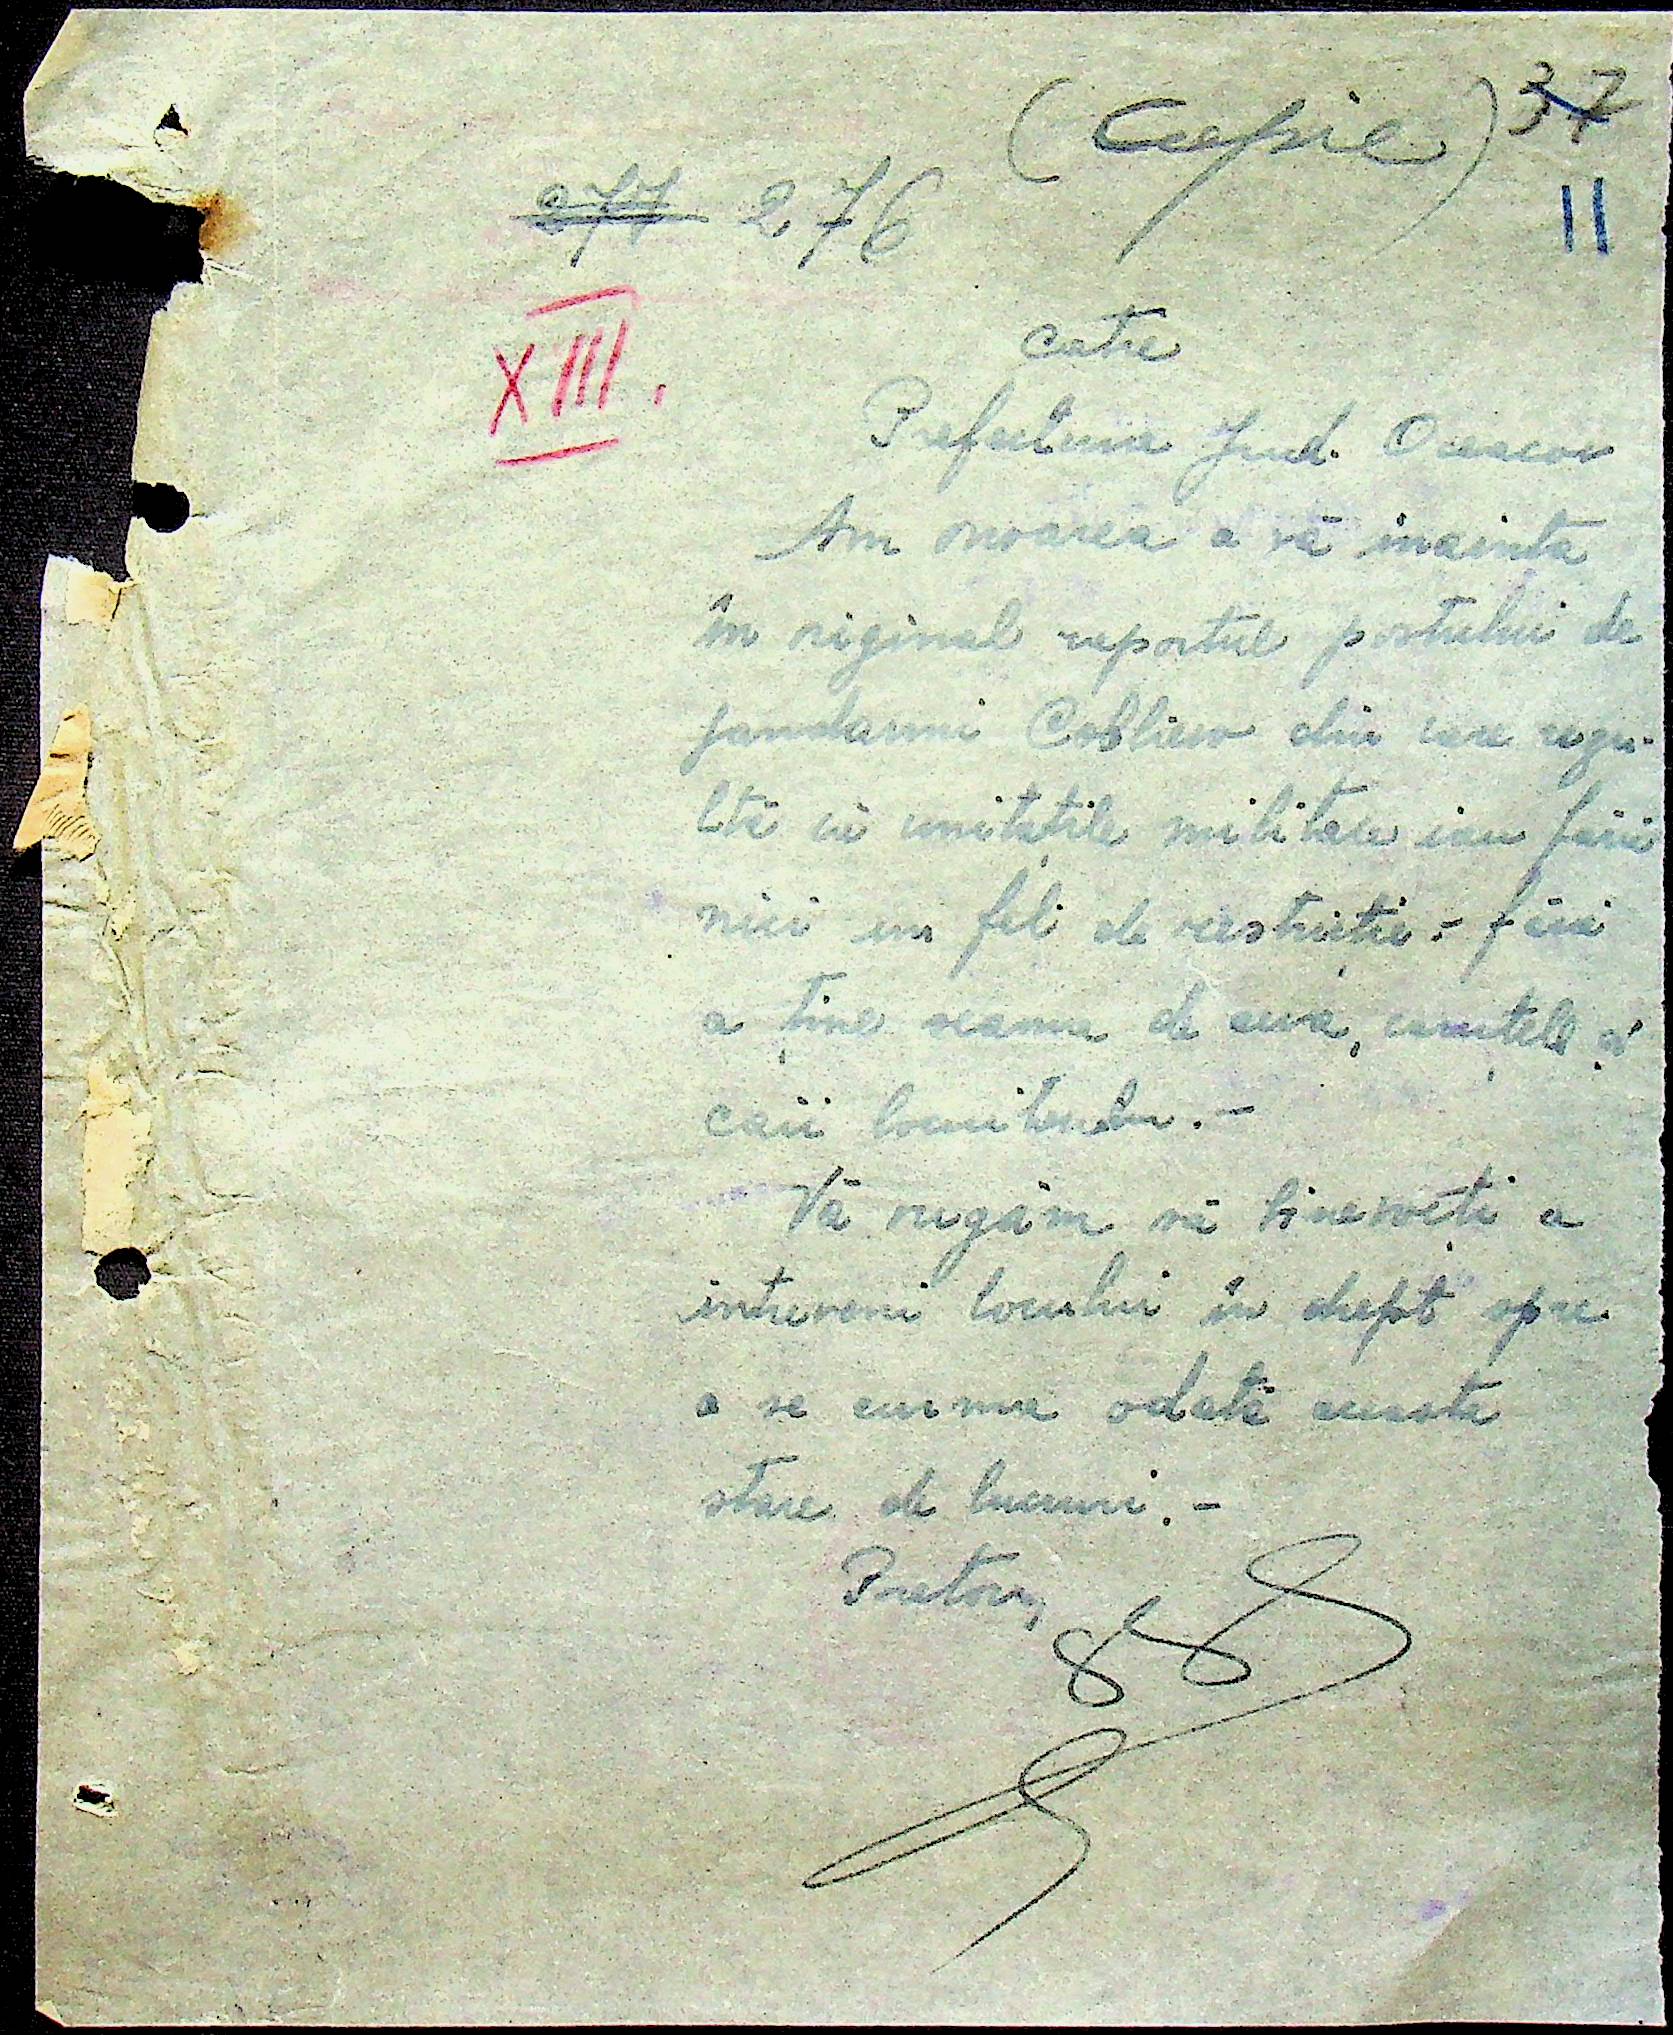 (Copie) 37
277 276 11
XIII.
Catre
Prefectura Jud. Oceacov
Am onoarea a vă inainta
în original raportul postului de
jandarmi Cobliewo din care rezu-
ltă că unitațile militare iau fără
nici un fel de restricție.- fără
a ține seama de ceva, caruțele și
caii locuitorilor.-
Vă rugăm să binevoiți a
interveni locului în drept spre
a se curma odată aceasta
stare de lucruri.-
Pretor,